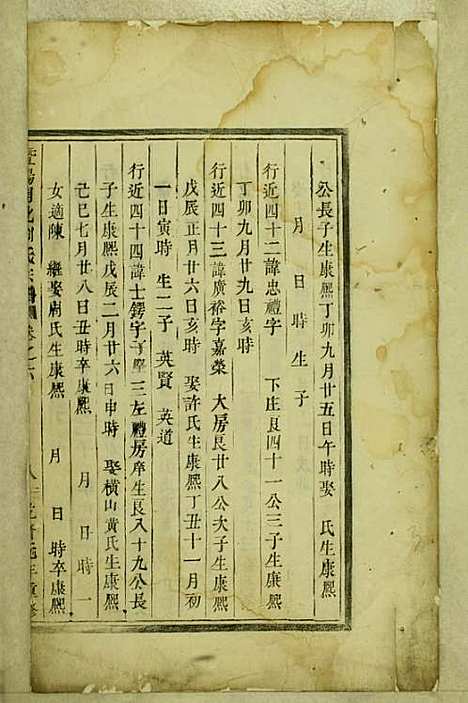 公長子生康熙丁卯九月廿五日午時娶 氏生康熙
月 日 時 生 子
行近四十二諱忠禮字 下庄良四十一公三子生康熙
丁卯九月廿九日亥時
行近四十三諱廣裕字嘉榮 大房良廿八公次子生康熙
戊辰正月廿六日亥時 娶許氏生康熙丁丑十一月初
一日寅時 生二子 英賢 英道
行近四十四諱士鍔字 三左禮房 生良八十九公長
子生康熙戊辰二月廿六日申時 娶橫山黃氏生康熙
己巳七月廿八日丑時卒康熙 月 日 時 一
女適陳 繼娶 氏生康熙 月 日 時卒康熙
暨陽 氏宗譜 卷之六